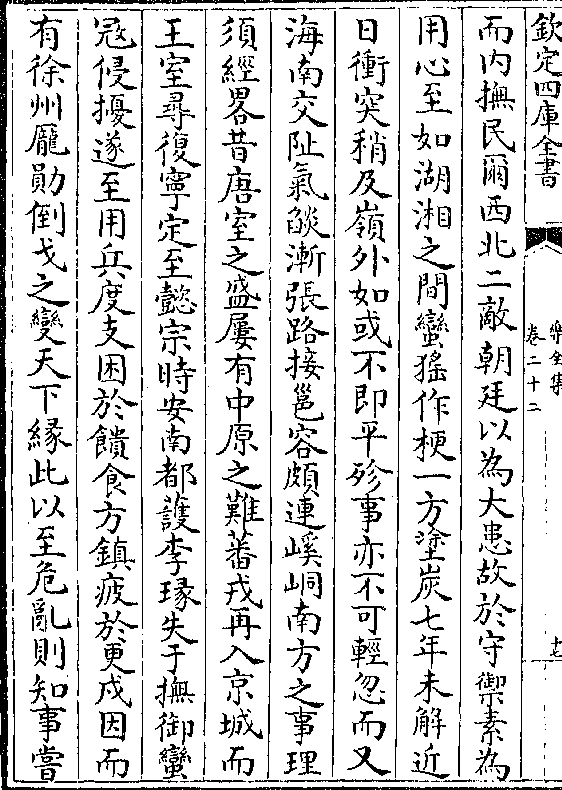 欽定四庫全書
樂全集
卷二十二
十七
而内撫民爾西北二敵朝廷以為大患故於守禦素為
用心至如湖湘之間蠻猺作梗一方塗炭七年未解近
日衝突稍及嶺外如或不即平殄事亦不可輕忽而又
海南交阯氣燄漸張路接邕容頗連嵠峒南方之事理
須經畧昔唐室之盛屢有中原之難蕃戎再入京城而
王室尋復寧定至懿宗時安南都護李瑑失于撫御蠻
宼侵擾遂至用兵度支困於饋食方鎮疲於更戍因而
有徐州龎勛倒戈之變天下緣此以至危亂則知事嘗